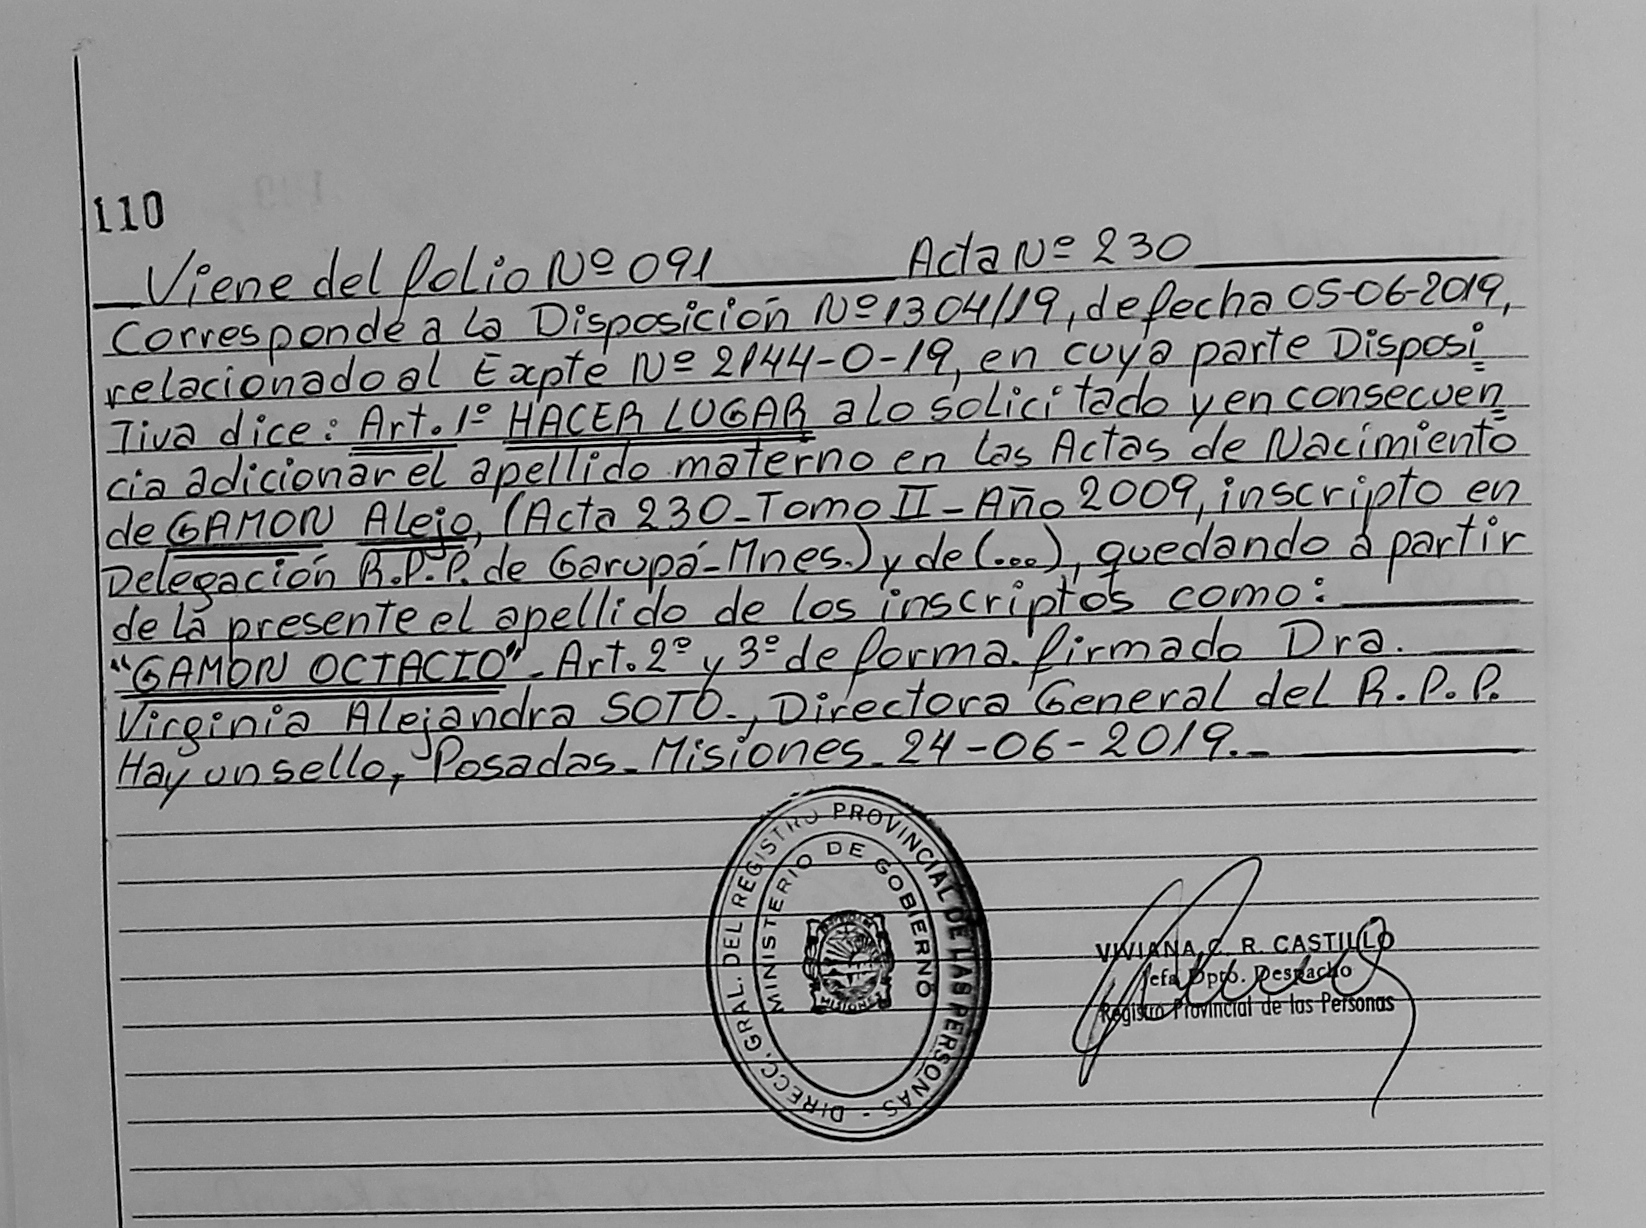 110
Viene del folio Nº 091 Acta Nº 230
Corresponde a la Disposición Nº 1304/19, de fecha 05-06-2019,
relacionado al Expte Nº 2144-0-19, en cuya parte Disposi
Tiva dice: Art. 1º HACER LUGAR a lo solicitado y en consecuen
cia adicionar el apellido materno en las Actas de Nacimiento
de GAMON Alejo, (Acta 230-Tomo II-Año 2009, inscripto en
Delegación R.P.P. de Garupá-Mnes.) y de (...), quedando a partir
de la presente el apellido de los inscriptos como:
"GAMON OCTACIO"- Art. 2º y 3º de forma. firmado Dra.
Virginia Alejandra SOTO., Directora General del R.P.P.
Hay un sello, Posadas-Misiones-24-06-2019.-
DIRECC. GRAL. DEL REGISTRO PROVINCIAL DE LAS PERSONAS -
MINISTERIO DE GOBIERNO
MISIONES
VIVIANA C. R. CASTILLO
Jefa Dpto. Despacho
Registro Provincial de las Personas